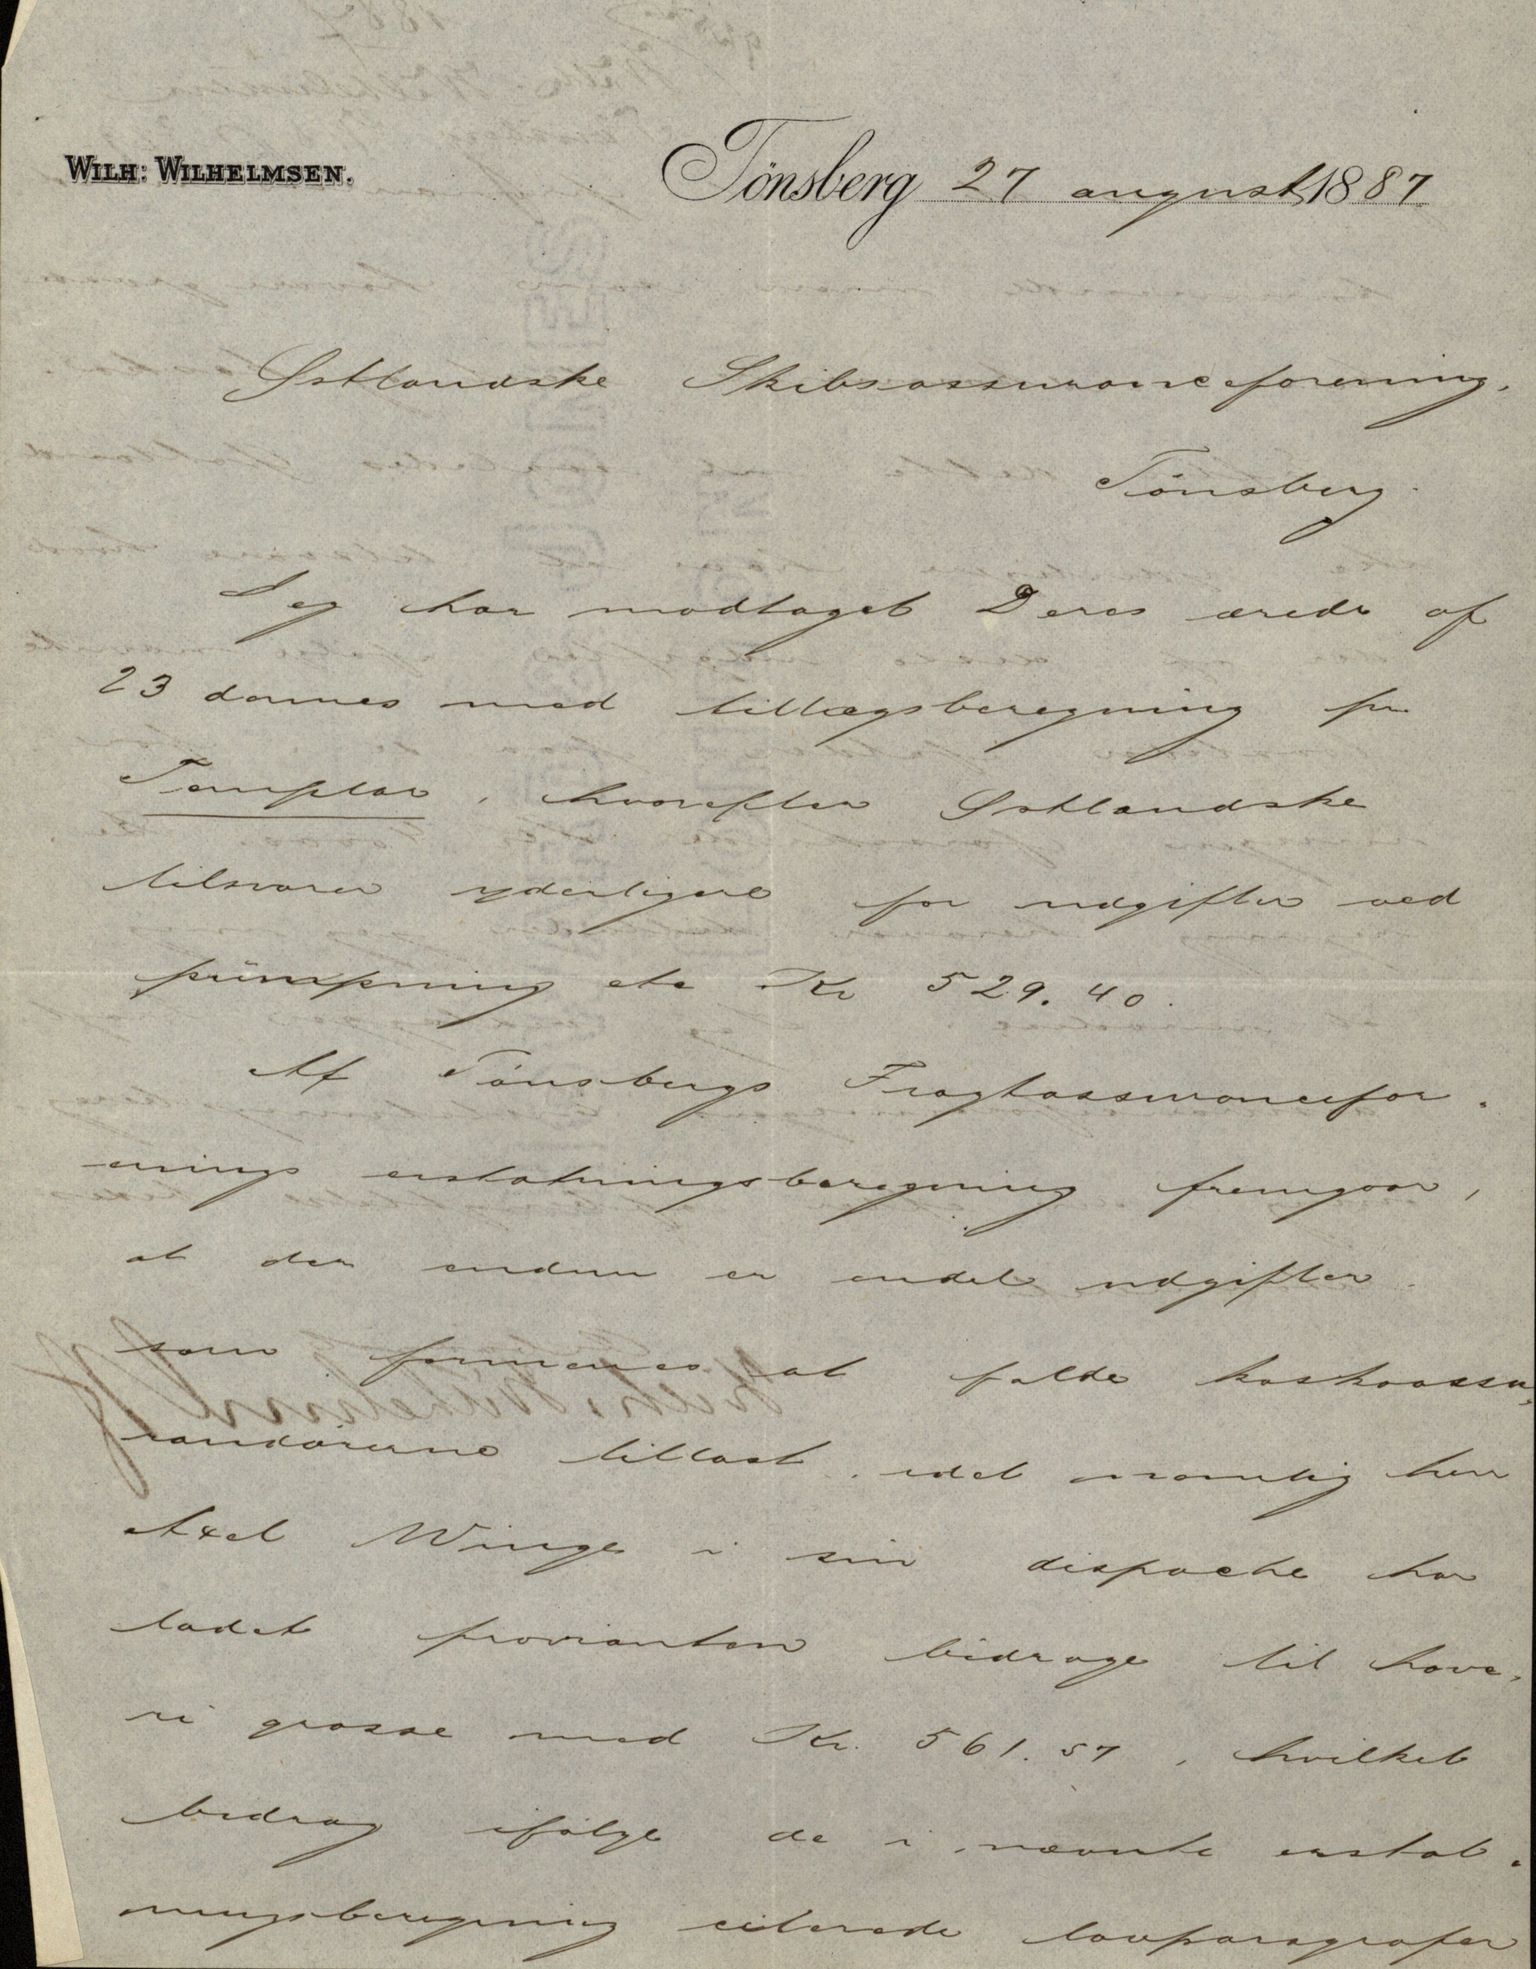 WILH: WILHELMSEN.
Tönsberg 27 august 1887
Østlandske Skibsassuranceforening.
Tönsberg.
Jeg har modtaget Deres ærede af
23 dennes med tillægsberegning pr
Templar, hvorefter Østlandske
tilsvarer yderligere for udgifter ved
pümpning etc Kr 529.40.
Af Tönsbergs Fragtassurancefor-
enings erstatningsberegning fremgaar,
at der endnu er endel udgifter
som formenes at falde kaskoassu-
randörerne tillast, idet nemlig herr
Axel Winge i sin dispache har
ladet provianten bidrage til hava-
ri grosse med Kr. 561.57, hvilket
bidrag ifölge de i nævnte erstat-
ningsberegning citerede lovparagrafer